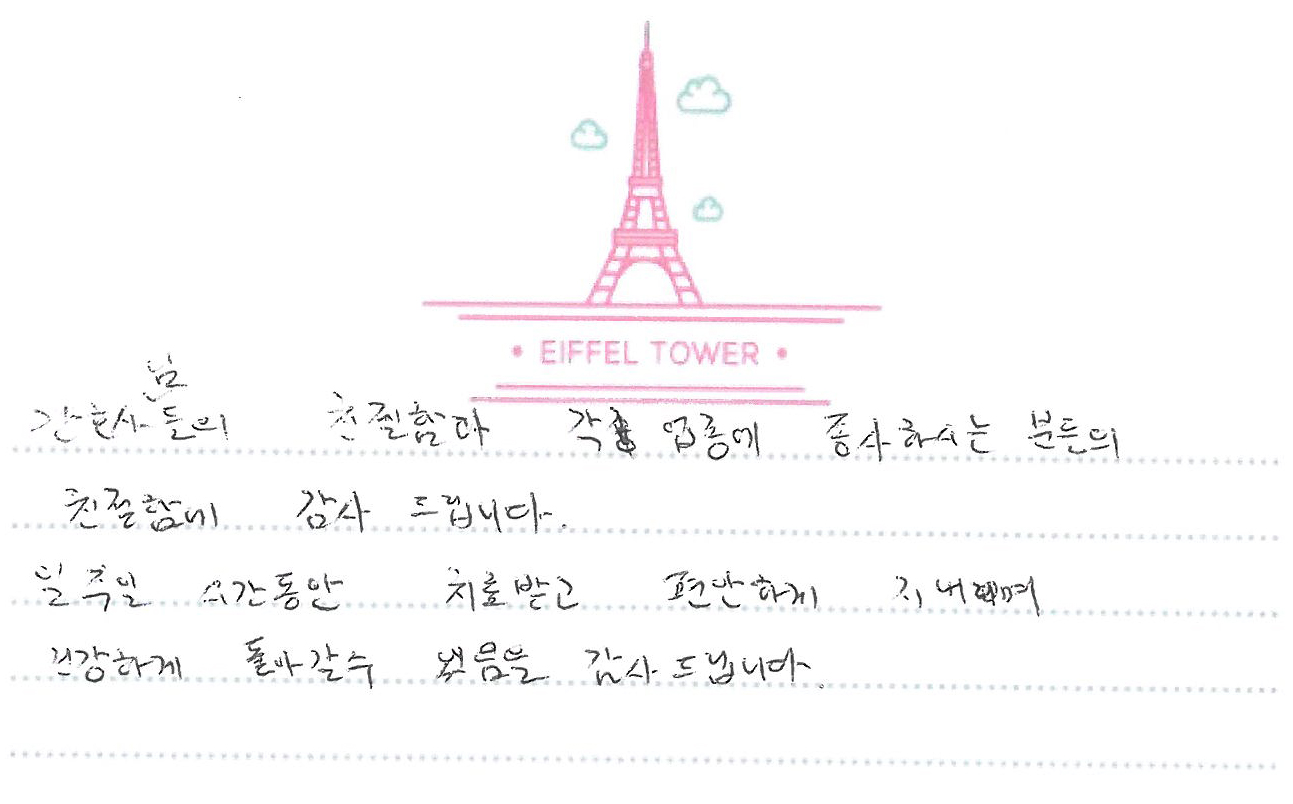 • EIFFEL TOWER •
간호사님들의 친절함과 각 업종에 종사하시는 분들의
친절함에 감사 드립니다.
일주일 시간동안 치료받고 편안하게 지내며
건강하게 돌아갈수 있음을 감사드립니다.